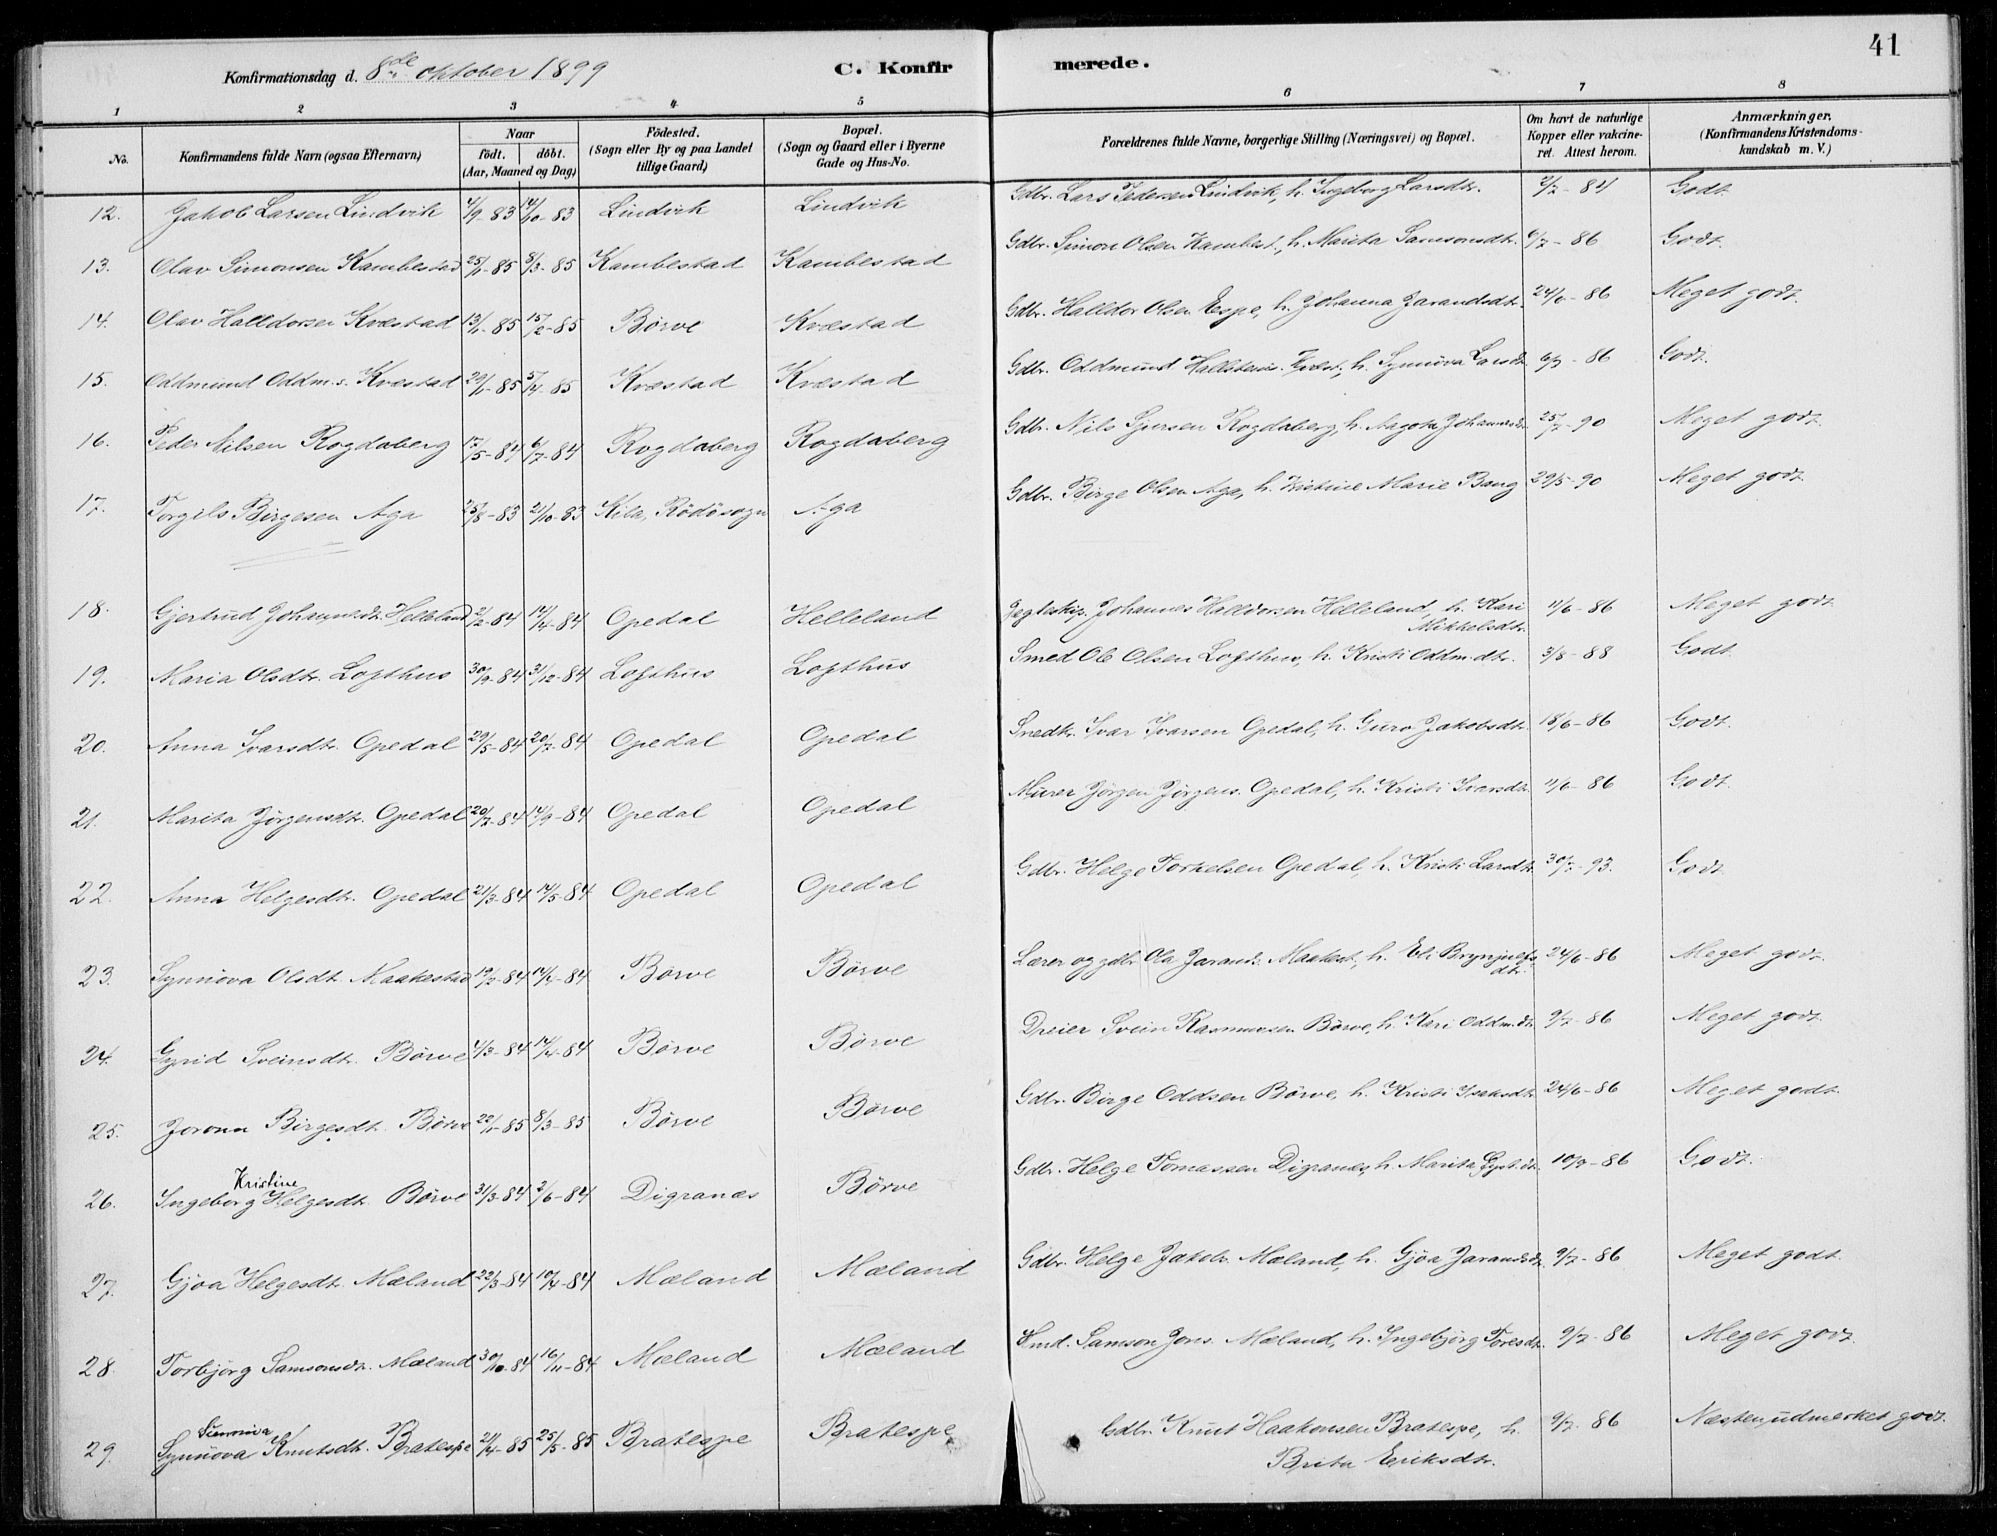 41
Konfirmationsdag d. 8de oktober 1899 C. Konfirmerede.
1 2 3 4 5 6 7 8
No. Konfirmandens fulde Navn (ogsaa Efternavn) Naar födt. döbt. (Aar, Maaned og Dag) Födested. (Sogn eller By og paa Landet tillige Gaard) Bopæl. (Sogn og Gaard eller i Byerne Gade og Hus-No.) Forældrenes fulde Navne, borgerlige Stilling (Næringsvei) og Bopæl. Om havt de naturlige Kopper eller vakcineret. Attest herom. Anmærkninger. (Konfirmandens Kristendomskundskab m. V.)
12. Jakob Larsen Lindvik 4/9-83 14/10-83 Lindvik Lindvik Gdbr. Lars Pedersen Lindvik, h. Ingeborg Larsdtr. 2/7-84 Godt
13. Olav Simonsen Kambestad 25/1-85 8/3-85 Kambestad Kambestad Gdbr. Simon Olsen Kambest., h. Marita Samsonsdt. 6/7-86 Godt
14. Olav Halldorsen Kvæstad 13/1-85 15/2-85 Börve Kvæstad Gdbr. Halldor Olsen Espe, h. Johanna Jarandsdt. 24/6-86 Meget godt
15. Oddmund Oddm.s. Kvæstad 29/1-85 5/4-85 Kvæstad Kvæstad Gdbr. Oddmund Hallsteins. Kvæst., h. Synnöva Larsdt. 6/7-86 Godt.
16. Peder Nilsen Rogdaberg 17/5-84 6/7-84 Rogdaberg Rogdaberg Gdbr. Nils Sjursen Rogdaberg, h. Aagota Johannesdt. 25/7-90 Meget godt
17. Torgils Birgesen Aga 25/8-83 21/10-83 Kila, Rödösogn Aga Gdbr. Birge Olsen Aga, h. Kristine Marie Bang 29/5-90 Meget godt
18. Gjertrud Johannesdt. Helleland 2/2-84 14/4-84 Opedal Helleland Jagteskip. Johannes Halldorsen Helleland, h. Kari Mikkelsdtr. 11/6-86 Meget godt
19. Maria Olsdtr. Lofthus 30/9-84 31/12-84 Lofthus Lofthus Smed Ole Olsen Lofthus, h. Kristi Oddm.dtr. 3/8-88 Godt
20. Anna Ivarsdtr. Opedal 29/5-84 20/7-84 Opedal Opedal Snedkr. Ivar Ivarsen Opedal, h. Guro Jakobsdt. 18/6-86 Godt
21. Marita Jörgensdt. Opedal 20/7-84 14/9-84 Opedal Opedal Murer Jörgen Jörgens. Opedal, h. Kristi Ivarsdt. 11/6-86 Godt
22. Anna Helgesdtr. Opedal 21/3-84 14/5-84 Opedal Opedal Gdbr. Helge Torkelsen Opedal, h. Kristi Larsdt. 30/7-93. Godt
23. Synnöva Olsdt. Maakestad 19/2-84 14/4-84 Börve Börve Lærer og gdbr. Ola Jarands. Maakest., h. Eli Brynjulfsdtr. 24/6-86 Meget godt
24. Gyrid Sveinsdtr. Börve 4/3-84 14/4-84 Börve Börve Dreier Svein Rasmussen Börve, h. Kari Oddm.dt. 9/7-86 Meget godt.
25. Jorunn Birgesdt. Börve 22/1-85 8/3-85 Börve Börve Gdbr. Birge Oddsen Börve, h. Kristi Isaksdt. 24/6-86 Meget godt.
26. Ingeborg Kristine Helgesdt. Börve 31/3-84 2/6-84 Digranæs Börve Gdbr. Helge Tomassen Digranes, h. Marita Gyst.dt. 10/7-86 Godt.
27. Gjöa Helgesdt. Mæland 22/3-84 10/4-84 Mæland Mæland Gdbr. Helge Jakobs. Mæland, h. Gjöa Jarandsdt. 9/7-86 Meget godt.
28. Torbjörg Samsonsdt. Mæland 30/10-84 16/11-84 Mæland Mæland Hmd. Samson Jons. Mæland, h. Ingebjörg Toresdt. 9/7-86 Meget godt.
29. Synnöva Knutsdt. Bratespe 2/4-85 25/5-85 Bratespe Bratespe Gdbr. Knut Haakonsen Bratespe, h. Brita Eriksdtr. 9/7-86 Næsten udmerket godt.